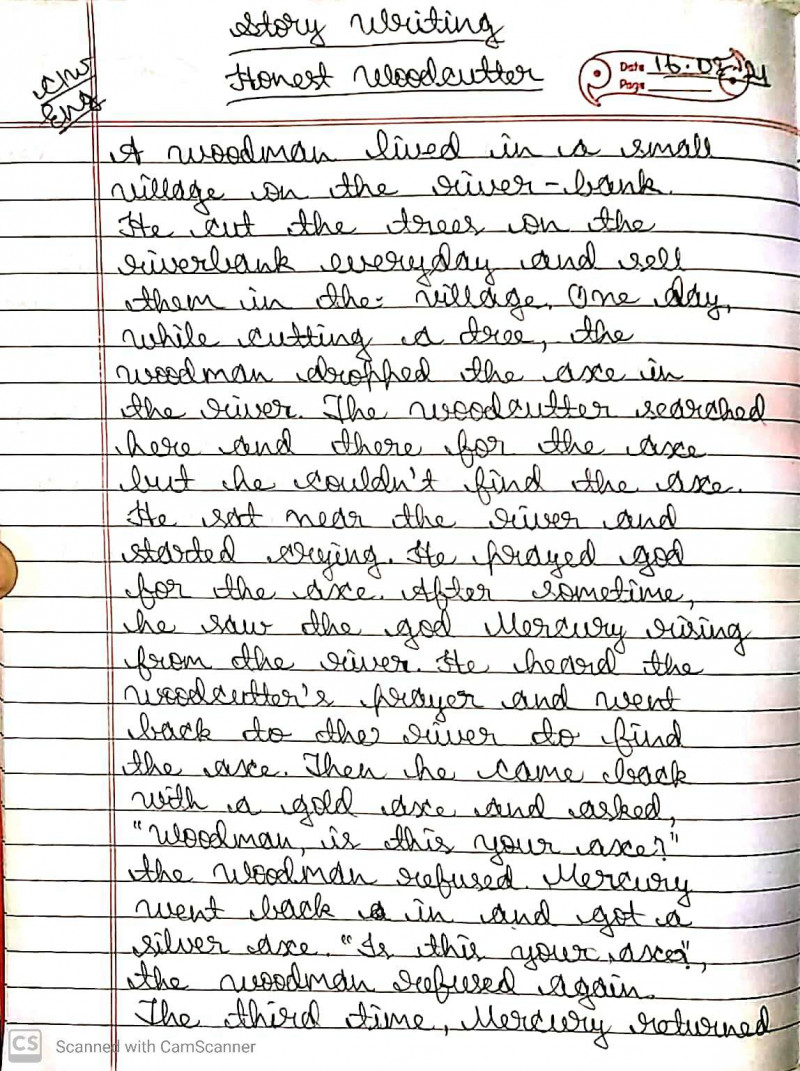 Story Writing
Honest Woodcutter
C/W
Eng
Date 16.07.21
Page
A woodman lived in a small
village on the river-bank.
He cut the trees on the
riverbank everyday and sell
them in the village. One day,
while cutting a tree, the
woodman dropped the axe in
the river. The woodcutter searched
here and there for the axe
but he couldn't find the axe.
He sat near the river and
started crying. He prayed god
for the axe. After sometime,
he saw the god Mercury rising
from the river. He heard the
woodcutter's prayer and went
back to the river to find
the axe. Then he came back
with a gold axe and asked,
"Woodman, is this your axe?"
the woodman refused. Mercury
went back in and got a
silver axe. "Is this your axe?",
the woodman refused again.
The third time, Mercury returned
CS Scanned with CamScanner